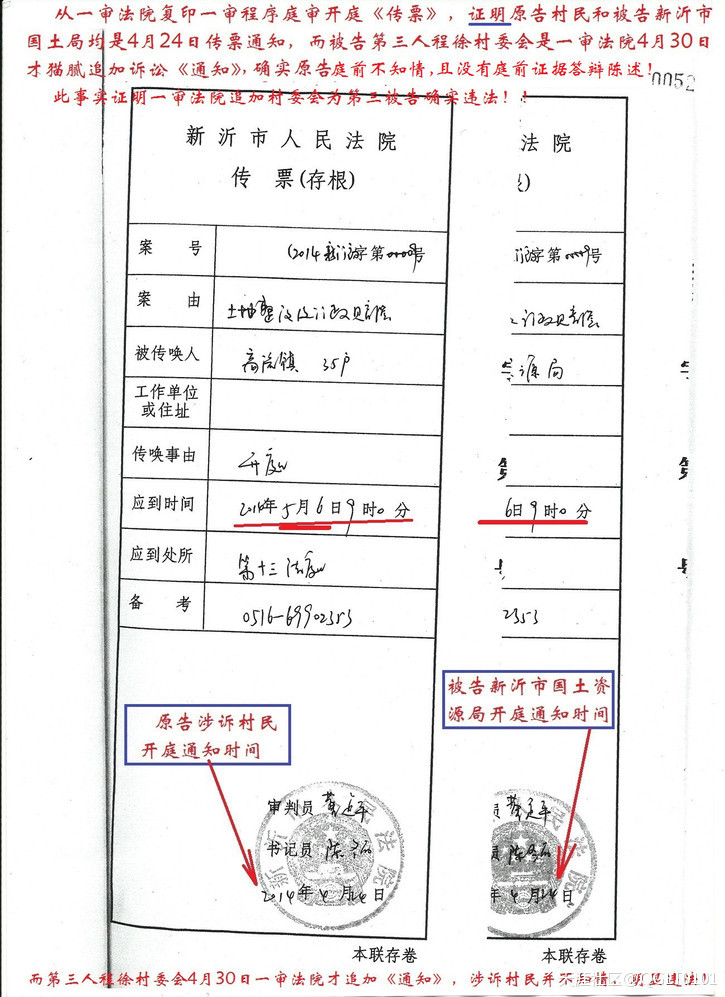 从一审法院复印一审程序庭审开庭《传票》，证明原告村民和被告新沂市
国土局均是4月24日传票通知，而被告第三人程徐村委会是一审法院4月30日
才猫腻追加诉讼《通知》，确实原告庭前不知情，且没有庭前证据答辩陈述！
此事实证明一审法院追加村委会为第三被告确实违法！！
0052
新沂市人民法院
传 票(存根)
案 号
(2014
字第
号
案 由
土地
行政
被传唤人
高流镇 35户
工作单位
或住址
传唤事由
开庭
应到时间
2014年5月6日9时0分
应到处所
第十三法庭
备 考
0516-69902353
法 院
字第
号
源局
6日9时0分
2353
原告涉诉村民
开庭通知时间
被告新沂市国土资
源局开庭通知时间
审判员
书记员 陈
2014年4月24日
本联存卷
员
员 陈
年4月24日
本联存卷
而第三人程徐村委会4月30日一审法院才追加《通知》，涉诉村民并不